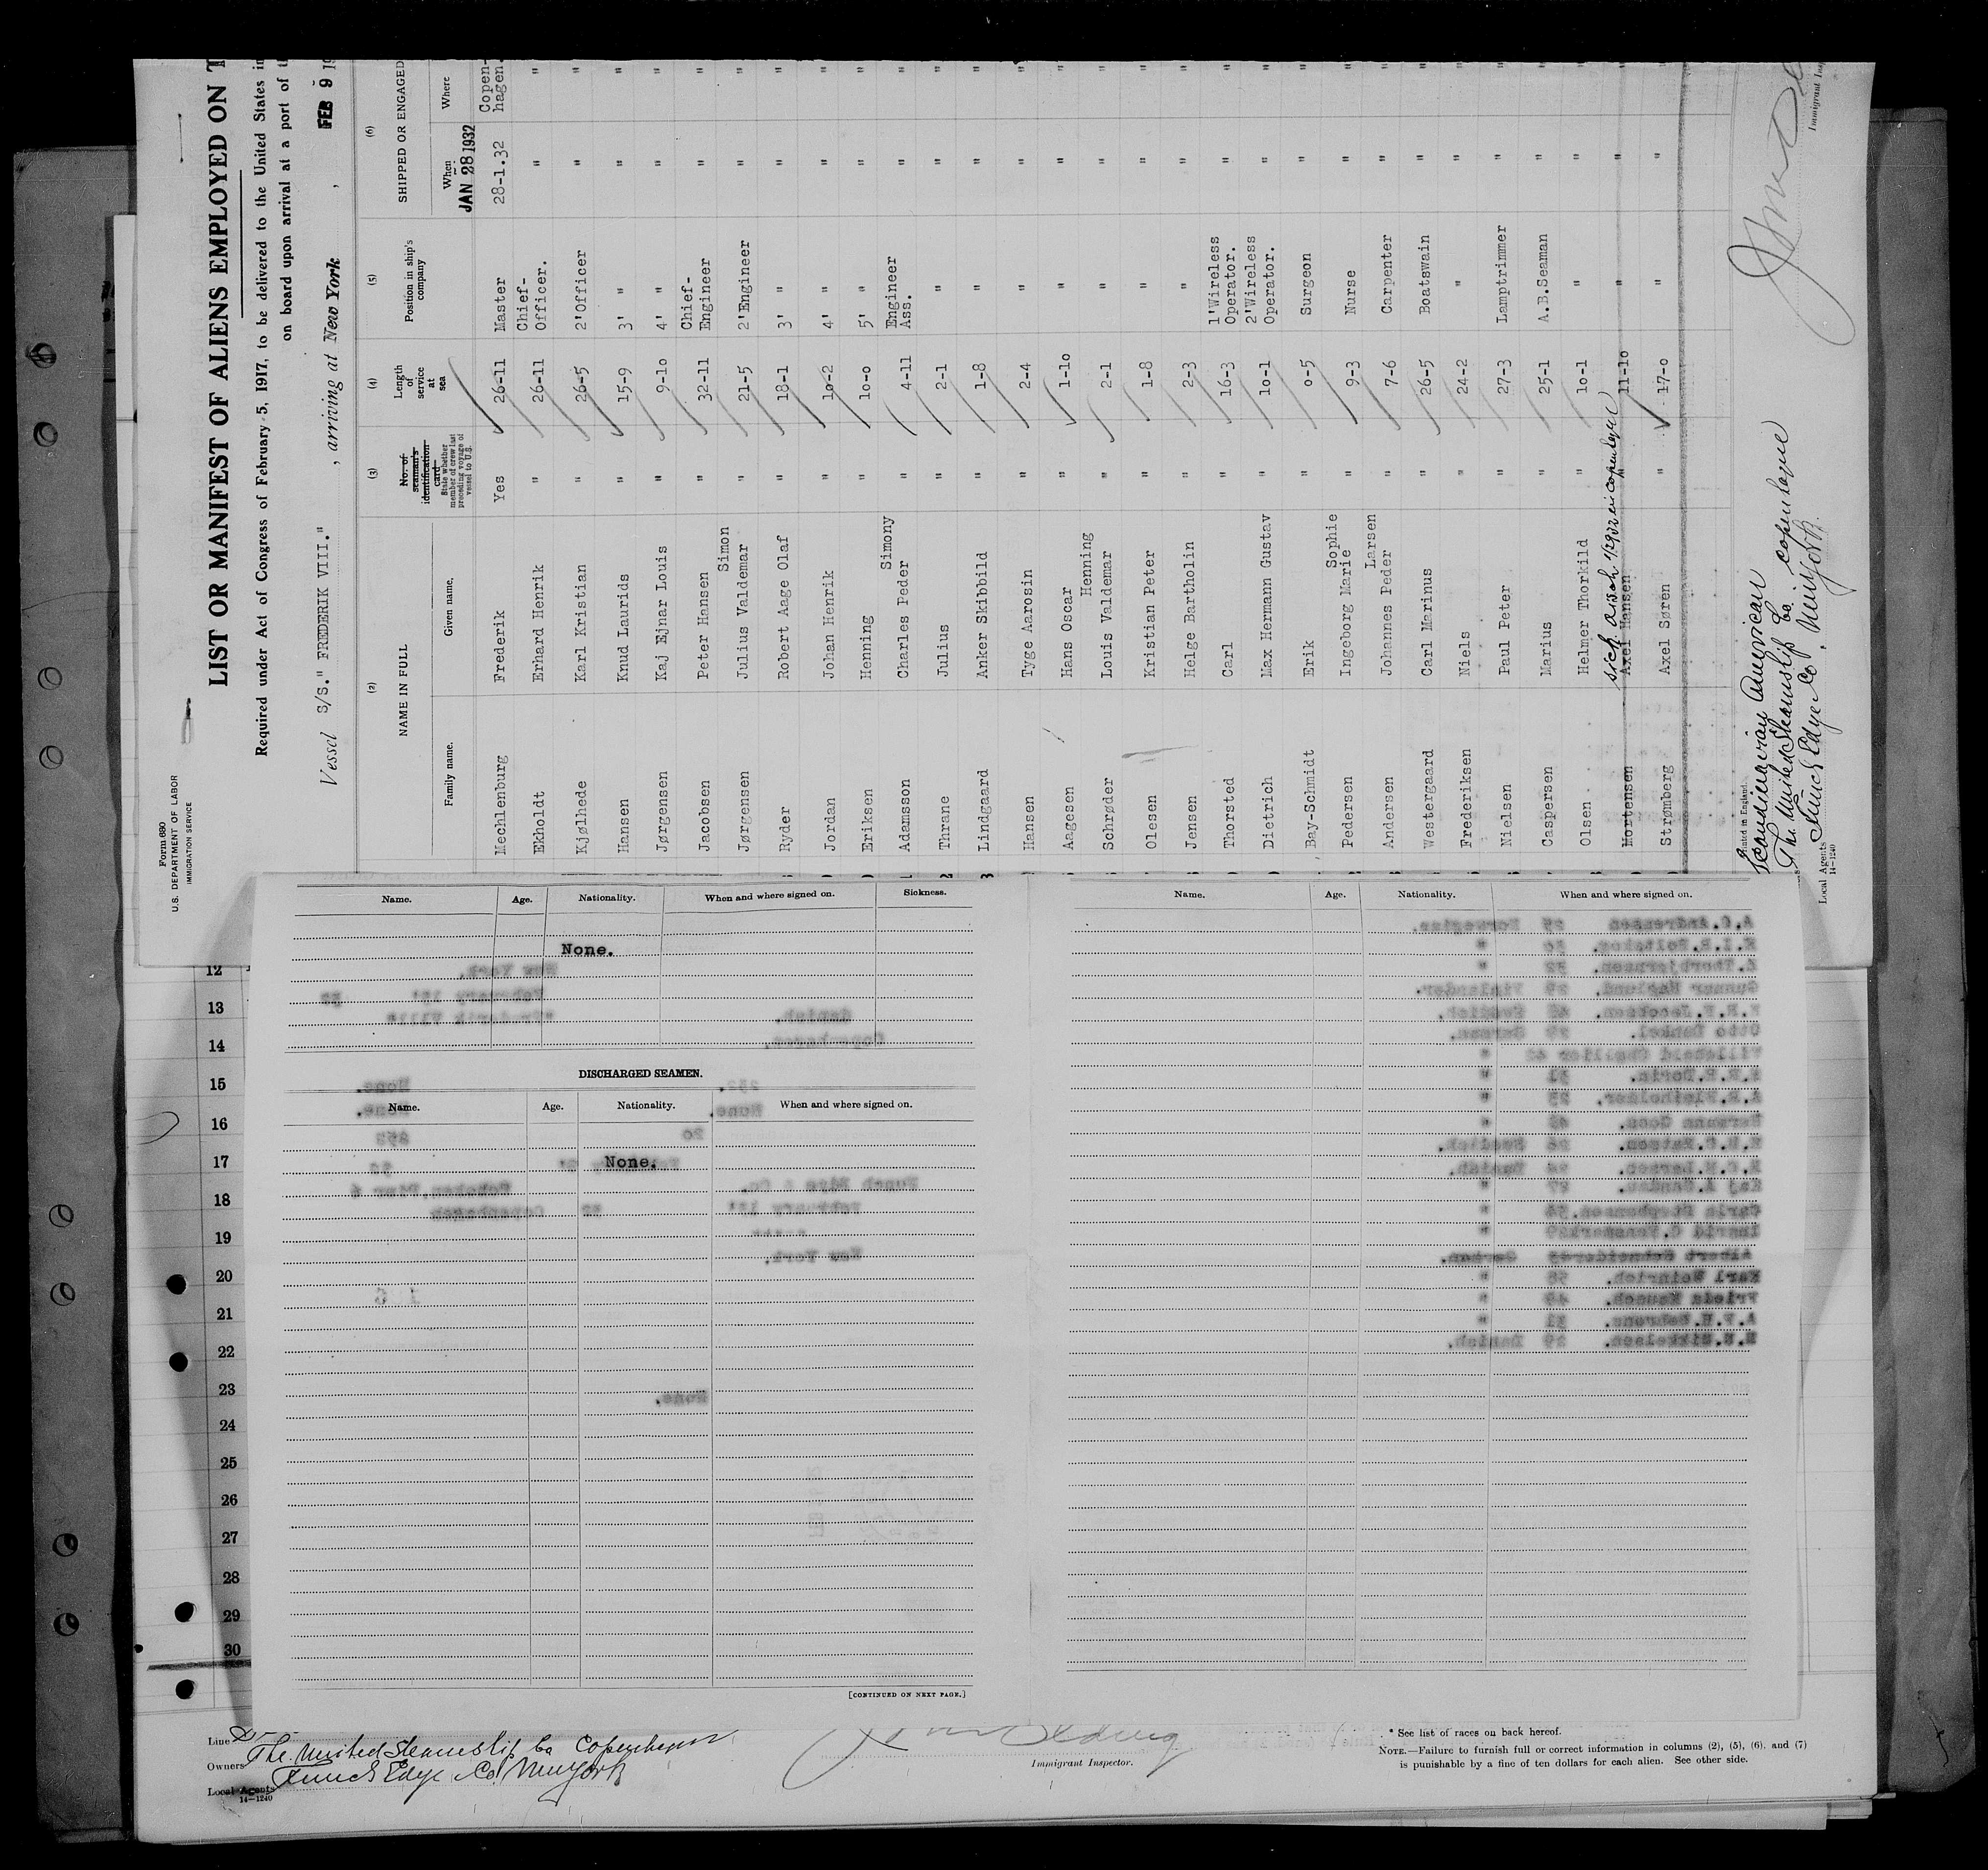 Form 680
U.S. DEPARTMENT OF LABOR
IMMIGRATION SERVICE
LIST OR MANIFEST OF ALIENS EMPLOYED ON T
Required under Act of Congress of February 5, 1917, to be delivered to the United States in
on board upon arrival at a port of th
Vessel S/S." FREDERIK VIII." , arriving at New York , FEB 9 19
(2) (3) (4) (5) (6)
NAME IN FULL
Family name. Given name.
No. of seaman's identification card
State whether member of crew last preceding voyage of vessel to U.S.
Length of service at sea
Position in ship's company
SHIPPED OR ENGAGED
When Where
JAN 28 1932
Mechlenburg Frederik Yes 26-11 Master 28-1.32 Copen-hagen.
Ekholdt Erhard Henrik " 26-11 Chief-Officer. " "
Kjølhede Karl Kristian " 26-5 2'Officer " "
Hansen Knud Laurids " 15-9 3' " " "
Jørgensen Kaj Ejnar Louis " 9-10 4' " " "
Jacobsen Peter Hansen " 32-11 Chief-Engineer " "
Jørgensen Simon Julius Valdemar " 21-5 2'Engineer " "
Ryder Robert Aage Olaf " 18-1 3' " " "
Jordan Johan Henrik " 10-2 4' " " "
Eriksen Henning " 10-0 5' " " "
Adamsson Simony Charles Peder " 4-11 Engineer Ass. " "
Thrane Julius " 2-1 " " "
Lindgaard Anker Skibbild " 1-8 " " "
Hansen Tyge Aarosin " 2-4 " " "
Aagesen Hans Oscar " 1-10 " " "
Schrøder Henning Louis Valdemar " 2-1 " " "
Olesen Kristian Peter " 1-8 " " "
Jensen Helge Bartholin " 2-3 " " "
Thorsted Carl " 16-3 1'Wireless Operator. " "
Dietrich Max Hermann Gustav " 10-1 2'Wireless Operator. " "
Bay-Schmidt Erik " 0-5 Surgeon " "
Pedersen Sophie Ingeborg Marie " 9-3 Nurse " "
Andersen Larsen Johannes Peder " 7-6 Carpenter " "
Westergaard Carl Marinus " 26-5 Boatswain " "
Frederiksen Niels " 24-2 " " "
Nielsen Paul Peter " 27-3 Lamptrimmer " "
Caspersen Marius " 25-1 A.B.Seaman " "
Olsen Helmer Thorkild " 10-1 " " "
Mortensen Axel Hansen " 11-10 " " "
Strømberg Axel Søren " 17-0 " " "
Printed in England.
Scandinavian American
The United Steamship Co. Copenhagen
Funch Edye Co. New York.
Local Agents
14-1240
Name. Age. Nationality. When and where signed on. Sickness.
None.
DISCHARGED SEAMEN.
Name. Age. Nationality. When and where signed on.
None.
[CONTINUED ON NEXT PAGE.]
Name. Age. Nationality. When and where signed on.
12
13
14
15
16
17
18
19
20
21
22
23
24
25
26
27
28
29
30
Line
Owners The United Steamship Co Copenhagen
Local Agents Funch Edye Co New York
14-1240
Immigrant Inspector.
* See list of races on back hereof.
NOTE.—Failure to furnish full or correct information in columns (2), (5), (6), and (7)
is punishable by a fine of ten dollars for each alien. See other side.